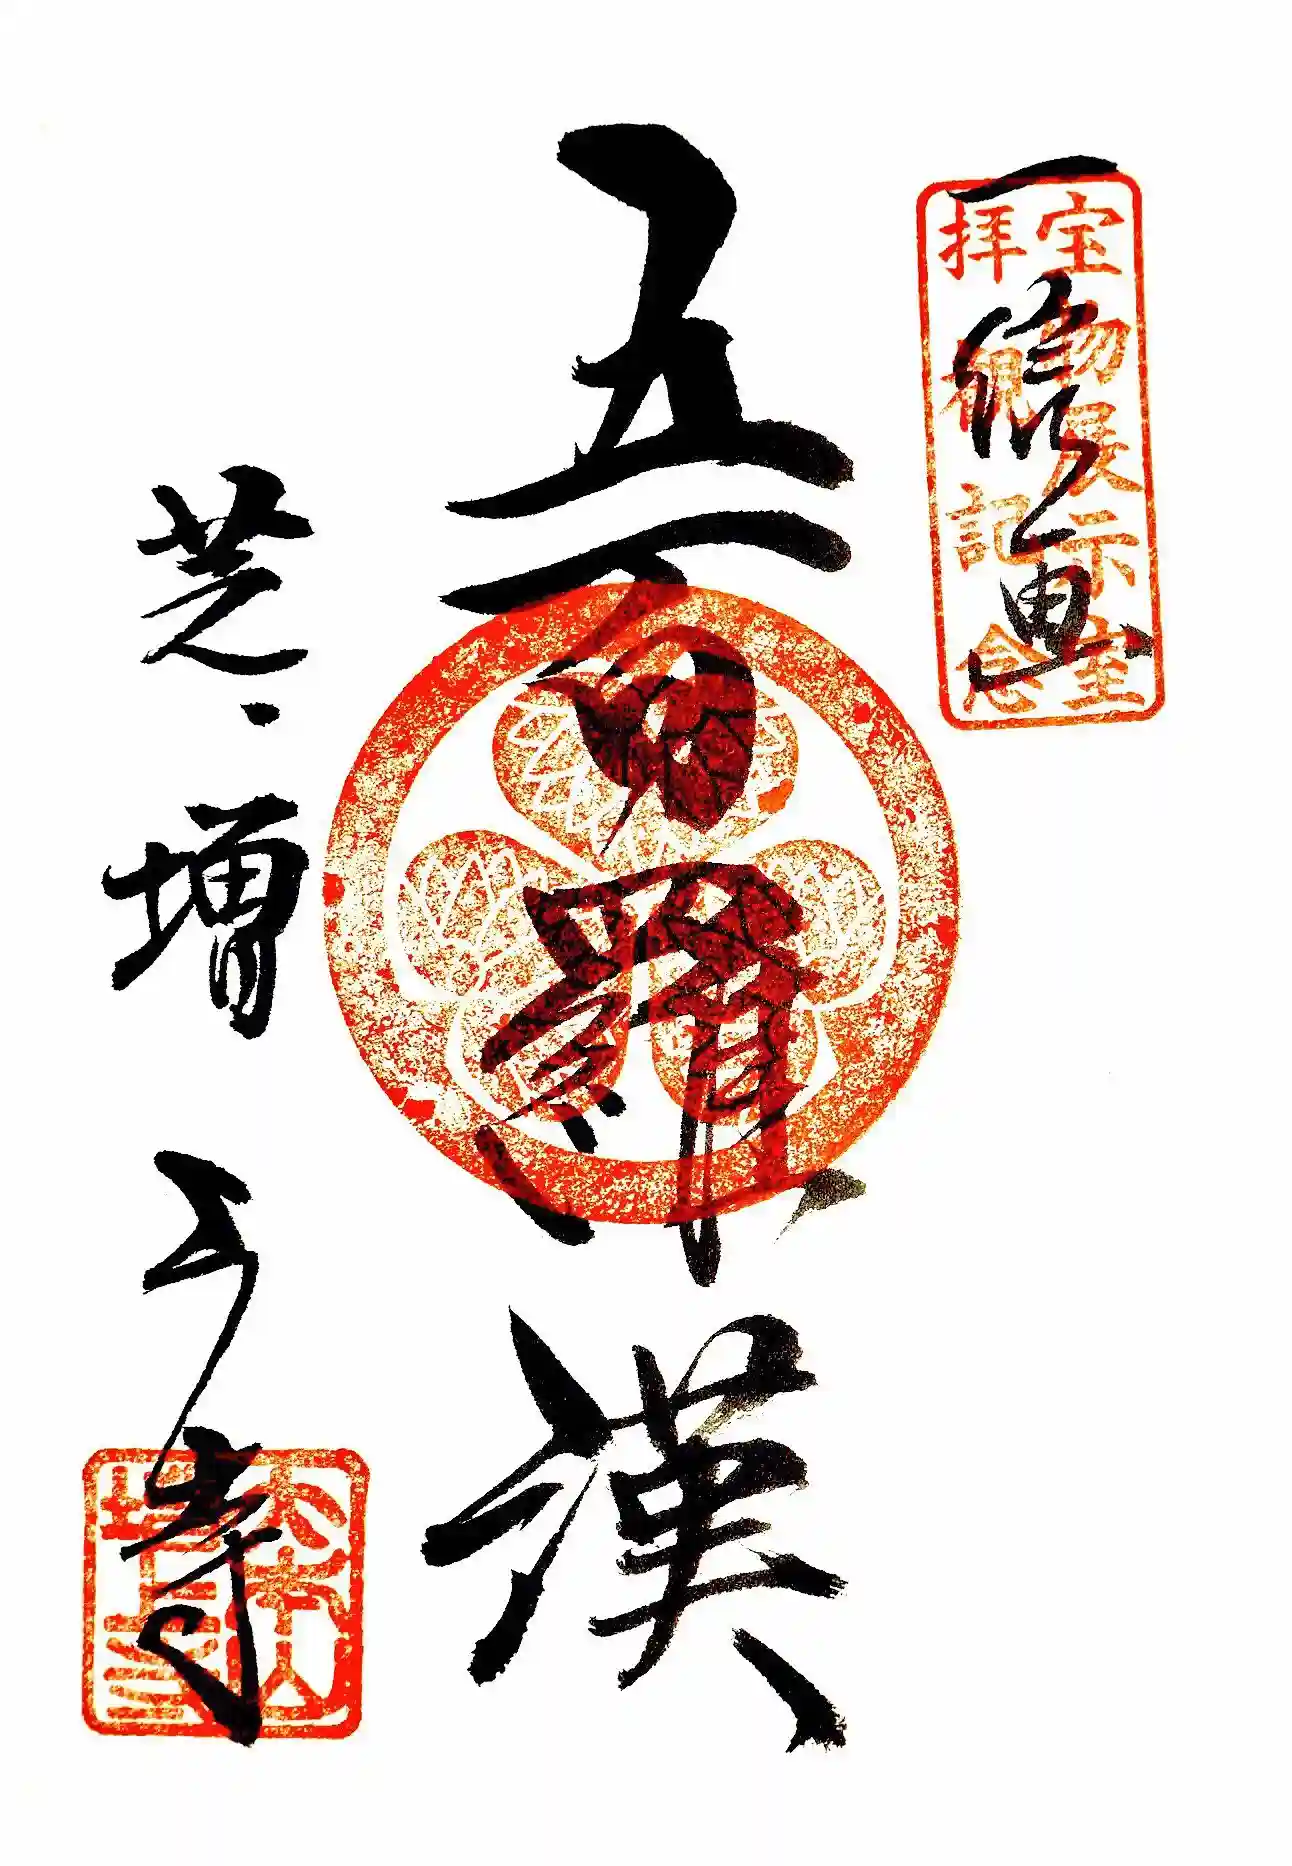 一信画
宝物展示室
拝観記念
五百羅漢
芝・増上寺
大本山
増上寺